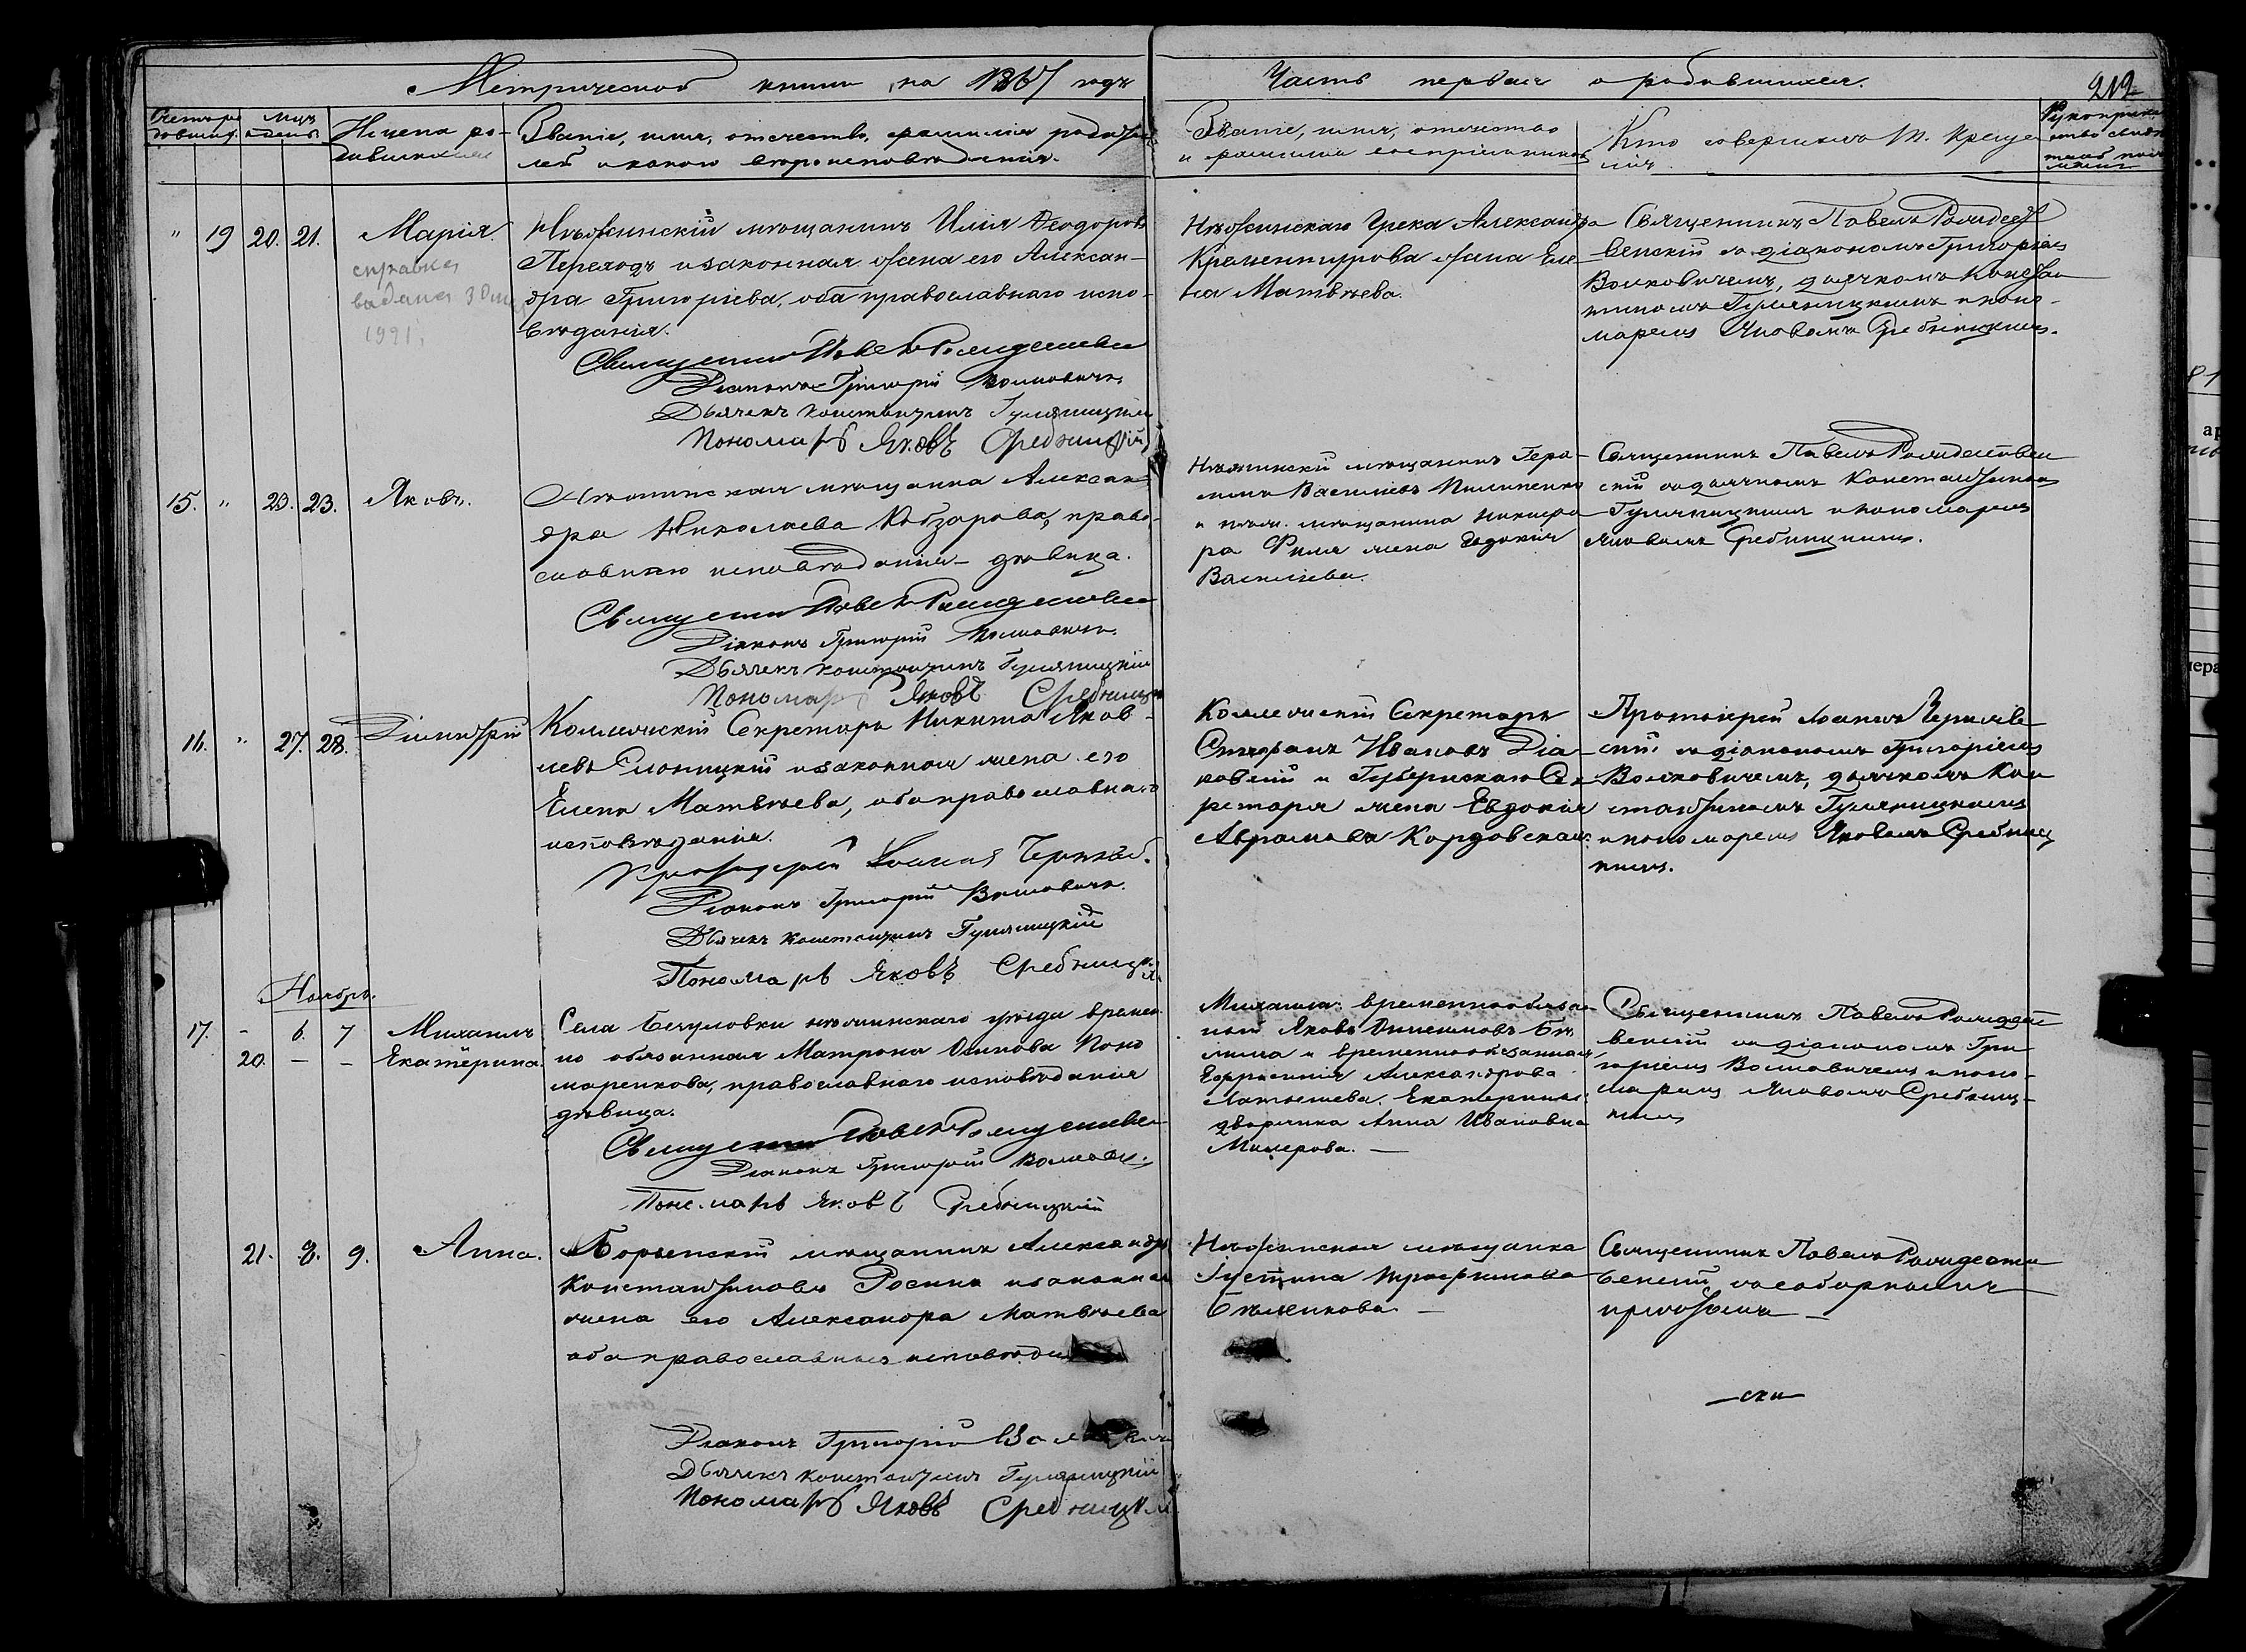 Метрической книги на 1867 годъ
Часть первая о родившихся.
212
Счетъ ро
дивших.
Мцъ
и день
Имена ро-
дившихся
Званіе, имя, отечество, фамилія родите
лей и какого вероисповѣданія.
Званіе, имя, отечество
и фамилія воспріемниковъ
Кто совершалъ т. креще
нія
Рукоприкла
ство свидѣ
" 19 20. 21. Марія.
справка
выдана
1991.
Нѣжинскій мѣщанинъ Илія Ѳеодоровъ
Переходъ и законная жена его Алексан-
дра Григоріева, оба православнаго испо-
вѣданія.
Священникъ Павелъ Рождественскій
Діаконъ Григорій Волковичъ
Дьячекъ Константинъ Гуляницкій
Пономарь Яковъ Сребницкій
Нѣжинскаго Грека Александра
жена Еле
на Матвѣева.
Священникъ Павелъ Рождест
венскій съ діакономъ Григоріемъ
Волковичемъ, дьячкомъ Констан
тиномъ Гуляницкимъ и поно-
маремъ Яковомъ Сребницкимъ.
15. " 23. 23. Яковъ.
Нѣжинская мѣщанка Алексан
дра Николаева Кобзарова, право-
славнаго исповѣданія – дѣвица.
Священникъ Павелъ Рождественскій
Діаконъ Григорій Волковичъ.
Дьячекъ Константинъ Гуляницкій
Пономарь Яковъ Сребницкій
Нѣжинскій мѣщанинъ Гера-
симъ Васильевъ Пилипенко
и нѣжи. мѣщанина Никифо
ра жена Евдокія
Васильева.
Священникъ Павелъ Рождествен
скій съ дьячкомъ Константиномъ
Гуляницкимъ и пономаремъ
Яковомъ Сребницкимъ.
16. " 27. 28. Димитрій
Коллежскій Секретарь Никита Яков-
левъ Слоницкій и законная жена его
Елена Матвѣева, оба православнаго
исповѣданія.
Протоіерей Іоаннъ
Діаконъ Григорій Волковичъ.
Дьячекъ Константинъ Гуляницкій
Пономарь Яковъ Сребницкій
Коллежскій Секретарь
Стефанъ Ивановъ Діа-
ковскій и Губернскаго Сек
ретаря жена Евдокія
Аврамова Кордовская.
Протоіерей Іоаннъ
скій съ діакономъ Григоріемъ
Волковичемъ, дьячкомъ Кон
стантиномъ Гуляницкимъ
и пономаремъ Яковомъ Сребниц
кимъ.
Ноябрь.
17. - 6. 7 Михаилъ
20. — – Екатерина.
Села Бакуловки нѣжинскаго уѣзда времен
но обязанная Матрона Осипова Поно
маренкова, православнаго исповѣданія
дѣвица.
Священникъ Павелъ Рождественскій
Діаконъ Григорій Волковичъ.
Пономарь Яковъ Сребницкій
Михаила: временнообязан-
ный Яковъ
и временнообязанная
Евфросинія Александрова
Екатерины:
дворянка Анна Ивановна
Милерова. —
Священникъ Павелъ Рождест
венскій съ діакономъ Гри
горіемъ Волковичемъ и поно-
маремъ Яковомъ Сребниц-
кимъ
21. 8. 9. Анна.
Борзенскій мѣщанинъ Александръ
Константиновъ Росина и законная
жена его Александра Матвѣева
оба православнаго исповѣда
Діаконъ Григорій Волковичъ
Дьячекъ Константинъ Гуляницкій
Пономарь Яковъ Сребницкій
Нѣжинская мѣщанка
Трофимова
—
Священникъ Павелъ Рождест
венскій со соборнымъ
причтомъ —